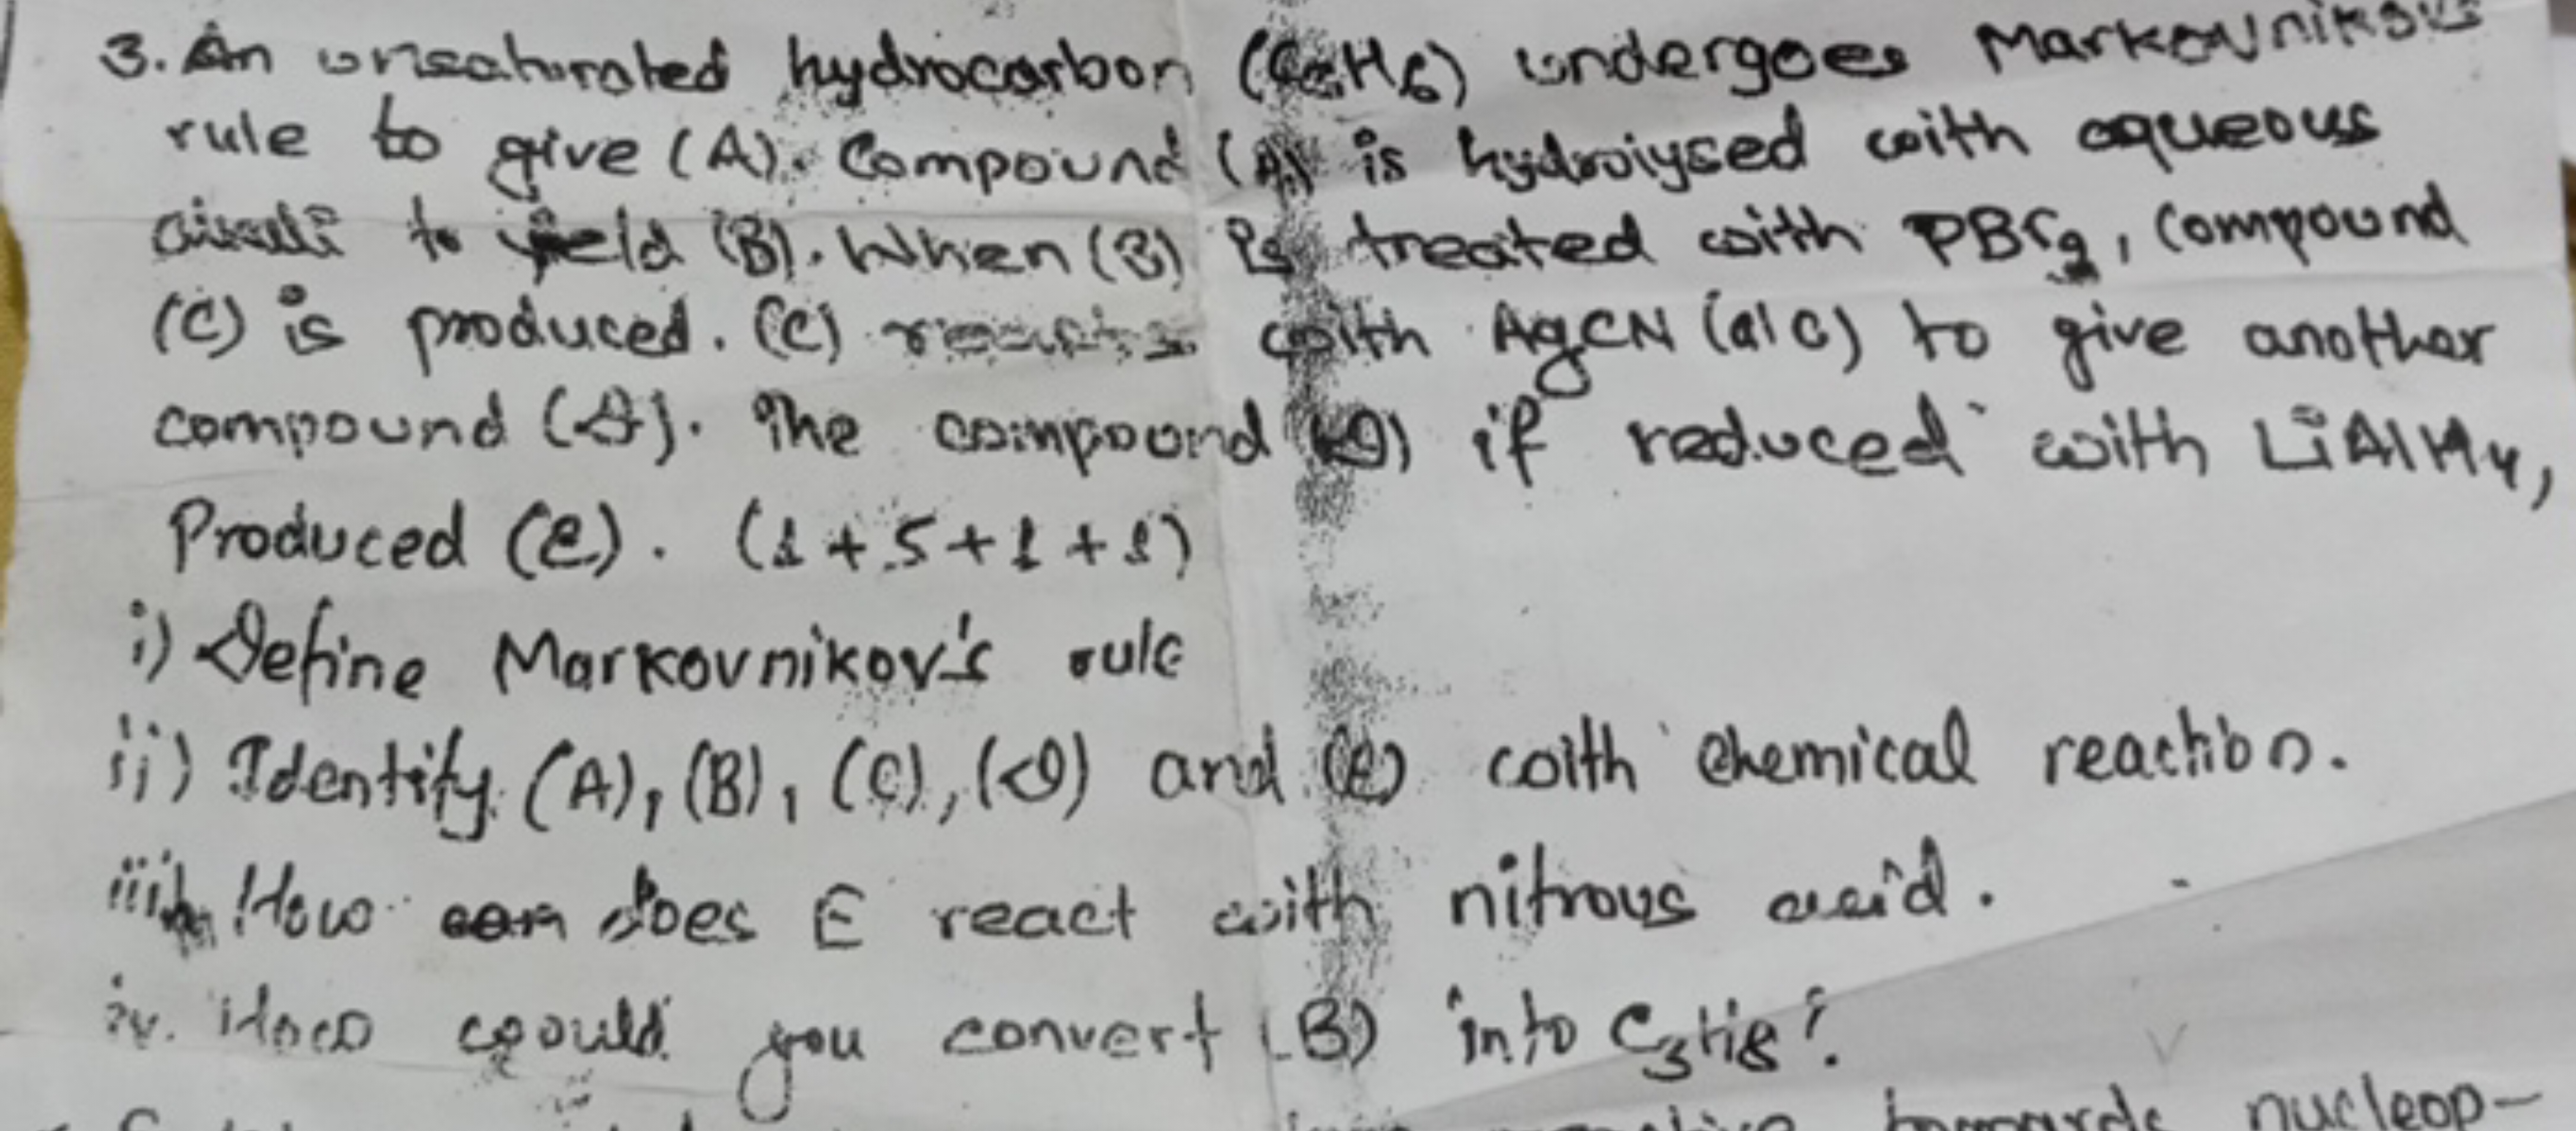 3. An unsaturated hydrocarbon (C3H6) undergoes Markovnikov's
rule to give (A). Compound (A) is hydrolysed with aqueous
alkali to yield (B). When (B) is treated with PBr3, Compound
(C) is produced. (C) reacts with AgCN (alc) to give another
compound (D). The compound (D) if reduced with LiAlH4,
Produced (E). (1+.5+1+1)
i) Define Markovnikov's rule
ii) Identify (A), (B), (C), (D) and (E) with chemical reaction.
iii. How does E react with nitrous acid.
iv. How coould you convert (B) into C3H8?
towards nucleop-